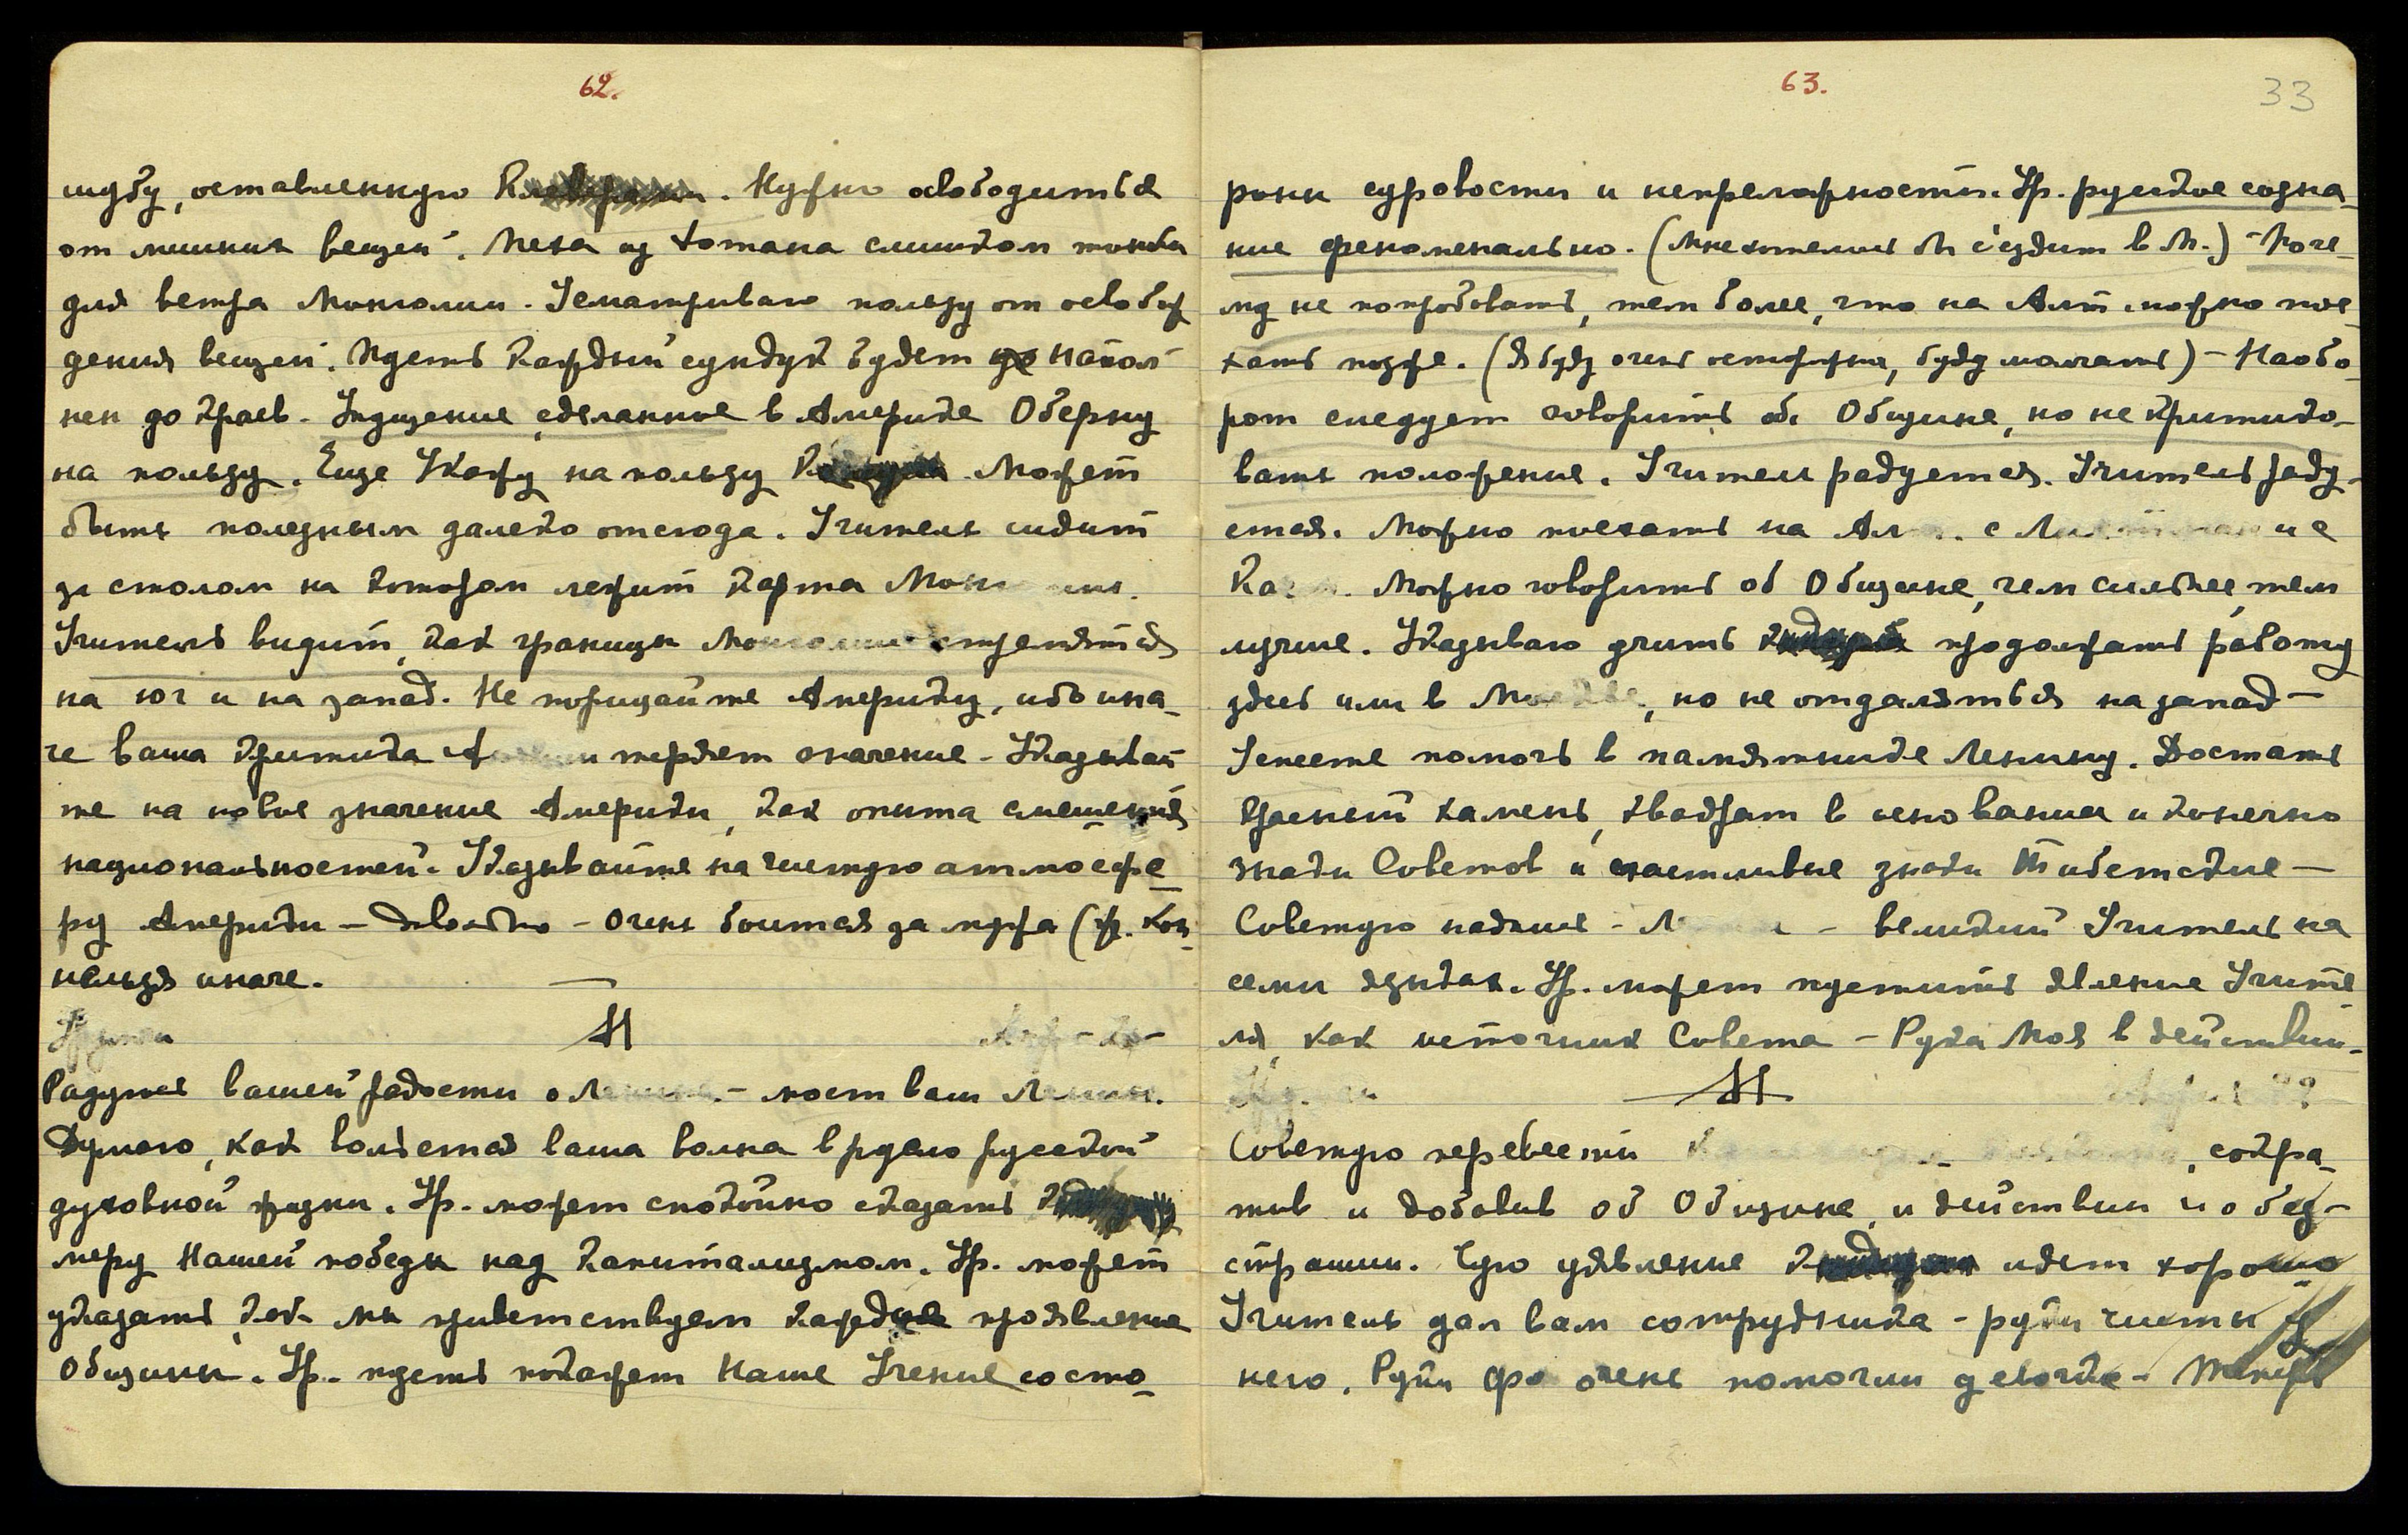 62.
шубу, оставленную. Нужно освободиться
от лишних вещей. Меха из Хотана слишком тонки
для ветра Монголии. Усматриваю пользу от освобож
дения вещей. Пусть каждый сундук будет напол
нен до краев. Ухудшение сделанное в Америке Оберну
на пользу. Еще Укажу на пользу. Может
быть полезным далеко отсюда. Учитель сидит
за столом на котором лежит карта
Учитель видит, как границы Монголии стремятся
на юг и на запад. Не порицайте Америку, ибо ина_
че ваша критика теряет значение - Указывай
те на новое значение Америки, как опыта смешения
национальностей. Указывайте на чистую атмосфе_
ру Америки - довольно - очень боится за мужа
нельзя иначе.
Радуюсь вашей радости о - мост ваш
Думаю, как вольется ваша волна в русло русской
духовной жизни. Ур. может спокойно сказать
меру Нашей победы над капитализмом. Ур. может
указать, как мы приветствуем каждое проявление
Общины. Ур. пусть покажет Наше Учение со сто_
63.
33
роны суровости и непреложности. Ур. русское созна_
ние феноменально. (Мне хотелось бы съездить в М.) - Поче_
му не попробовать, тем более, что на Алт можно пое_
хать позже. (Я буду очень осторожна, буду молчать) - Наобо_
рот следует говорить об Общине, но не критико_
вать положение. Учитель радуется. Учитель раду_
ется. Можно поехать на с и с
Можно говорить об Общине, чем сильнее, тем
лучше. Указываю учить продолжать работу
здесь или в, но не отдаляться на запад -
Успеете помочь в памятнике Ленину. Достать
красный камень, квадрат в основании и конечно
знаки Советов и счастливые знаки Тибетские -
Советую надпись - - великий Учитель на
семи языках. Ур. может пустить явление Учите
ля, как источник Совета - Рука Моя в действии_
Советую перевести, сокра_
тив и добавив об Общине, и действии и о без_
страшии. Чую удивление идет хорошо
Учитель дал вам сотрудника - руки чисты у
него. Руки очень помогли девочке - Теперь